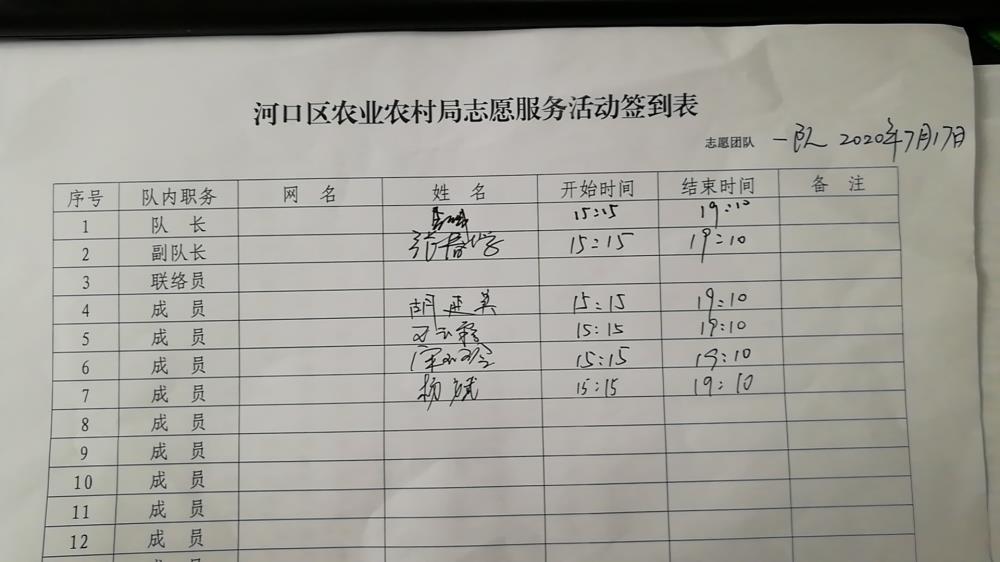 河口区农业农村局志愿服务活动签到表
志愿团队 一队 2020年7月17日
序号 队内职务 网 名 姓 名 开始时间 结束时间 备 注
1 队 长 15:15 19:10
2 副队长 15:15 19:10
3 联络员
4 成 员 胡延英 15:15 19:10
5 成 员 15:15 19:10
6 成 员 15:15 19:10
7 成 员 杨斌 15:15 19:10
8 成 员
9 成 员
10 成 员
11 成 员
12 成 员